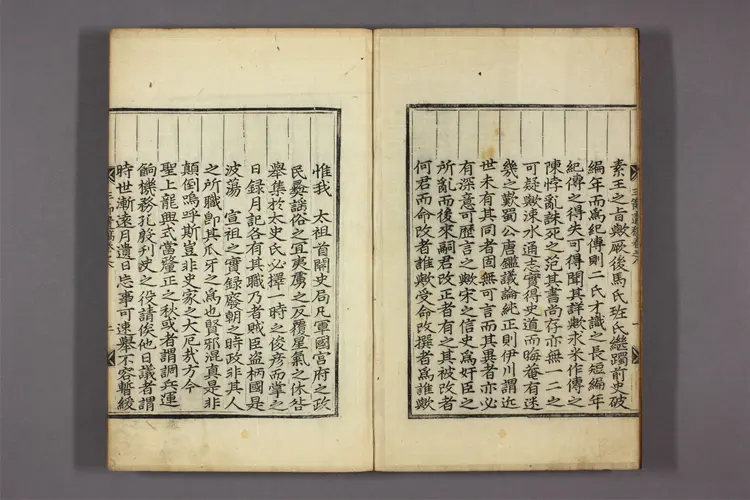 素王之旨歟厥後馬氏班氏繼躅前史破
編年而爲紀傳則二氏才識之長短編年
紀傳之得失可得聞其詳歟永米作傳之
陳悖亂誅死之兇其書尚存亦無一二之
可疑歟涑水通志實得史道而晦菴有迷
幾之歎蜀公唐鑑議論純正則伊川謂近
世未有其同者固無可言而其異者亦必
有深意可歷言之歟宋之信史爲奸臣之
所亂而後來嗣君改正者有之其被改者
何君而命改者誰歟受命改撰者爲誰歟
惟我 太祖首闢史局凡軍國宮府之政
民彝謠俗之宜夷虜之反覆星氣之休咎
舉集於太史氏必擇一時之俊彦而掌之
日録月記各有其職乃者賊臣盜柄國是
波蕩 宣祖之實録廢朝之時政非其人
之所職卽其瓜牙之爲也賢邪混真是非
顛倒嗚呼豈非史家之大厄哉方今
聖上龍興式當釐正之秋或者謂調兵運
餉機務孔殷刋史之役請俟他日議者謂
時世漸遠月遺日忘事可速舉不容暫緩